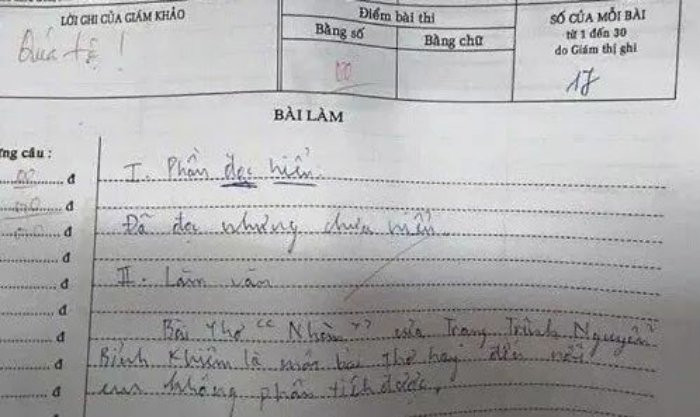 LỜI GHI CỦA GIÁM KHẢO
Quá tệ !
Điểm bài thi
Bằng số
Bằng chữ
00
SỐ CỦA MỖI BÀI
từ 1 đến 30
do Giám thị ghi
17
BÀI LÀM
ng câu :
00 đ
00 đ
00 đ
đ
đ
đ
đ
đ
I. Phần đọc hiểu.
Đã đọc nhưng chưa hiểu.
II. Làm văn
Bài thơ "Nhàn" của Trạng Trình Nguyễn
Bỉnh Khiêm là một bài thơ hay đến nỗi
em không phân tích được.